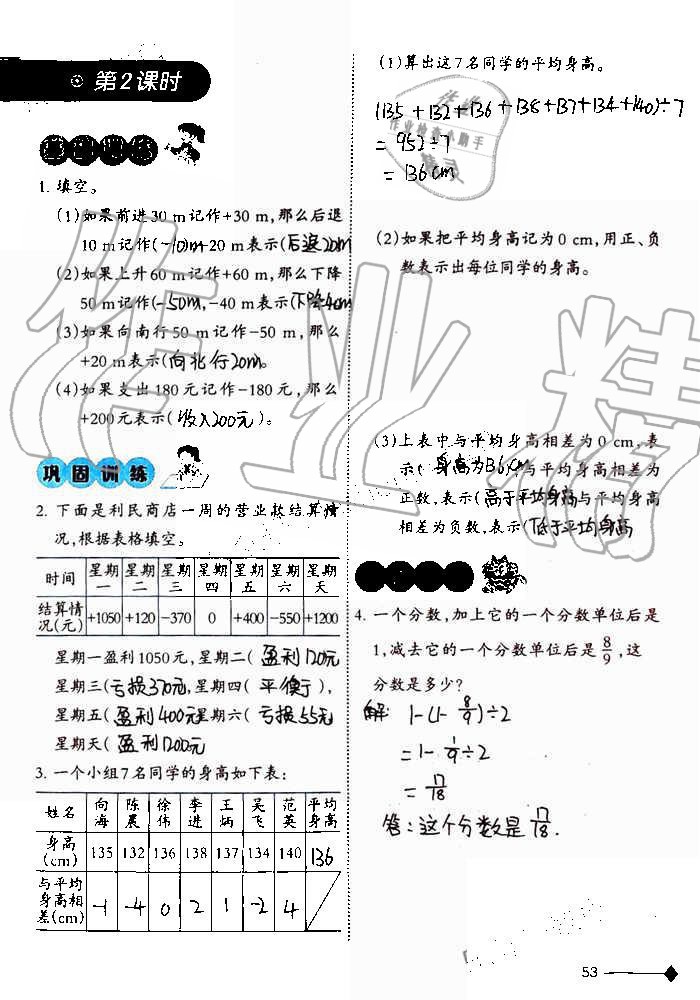 第2课时
1. 填空。
(1)如果前进30 m记作+30 m,那么后退
10 m记作(-10)m,-20 m表示(后退20m
(2)如果上升60 m记作+60 m,那么下降
50 m记作(-50m,-40 m表示(下降40m
(3)如果向南行50 m记作-50 m,那么
+20 m表示(向北行20m。
(4)如果支出180元记作-180元,那么
+200元表示(收入200元)。
巩固训练
2. 下面是利民商店一周的营业账结算情
况,根据表格填空。
时间 星期一 星期二 星期三 星期四 星期五 星期六 星期天
结算情况(元) +1050 +120 -370 0 +400 -550 +1200
星期一盈利1050元,星期二(盈利120元
星期三(亏损370元,星期四(平衡了),
星期五(盈利400元星期六(亏损55元
星期天(盈利1200元
3. 一个小组7名同学的身高如下表:
姓名 向海 陈晨 徐伟 李进 王炳 吴飞 范英 平均身高
身高(cm) 135 132 136 138 137 134 140 136
与平均身高相差(cm) -1 -4 0 2 1 -2 4
(1)算出这7名同学的平均身高。
(135+132+136+138+137+134+140)÷7
=952÷7
=136cm
(2)如果把平均身高记为0 cm,用正、负
数表示出每位同学的身高。
(3)上表中与平均身高相差为0 cm,表
示(身高为136cm与平均身高相差为
正数,表示(高于平均身高与平均身高
相差为负数,表示(低于平均身高
4. 一个分数,加上它的一个分数单位后是
1,减去它的一个分数单位后是8/9,这
分数是多少?
解: 1-(1-8/9)÷2
=1-1/9÷2
=17/18
答:这个分数是17/18.
53
作业精
作业检查小助手